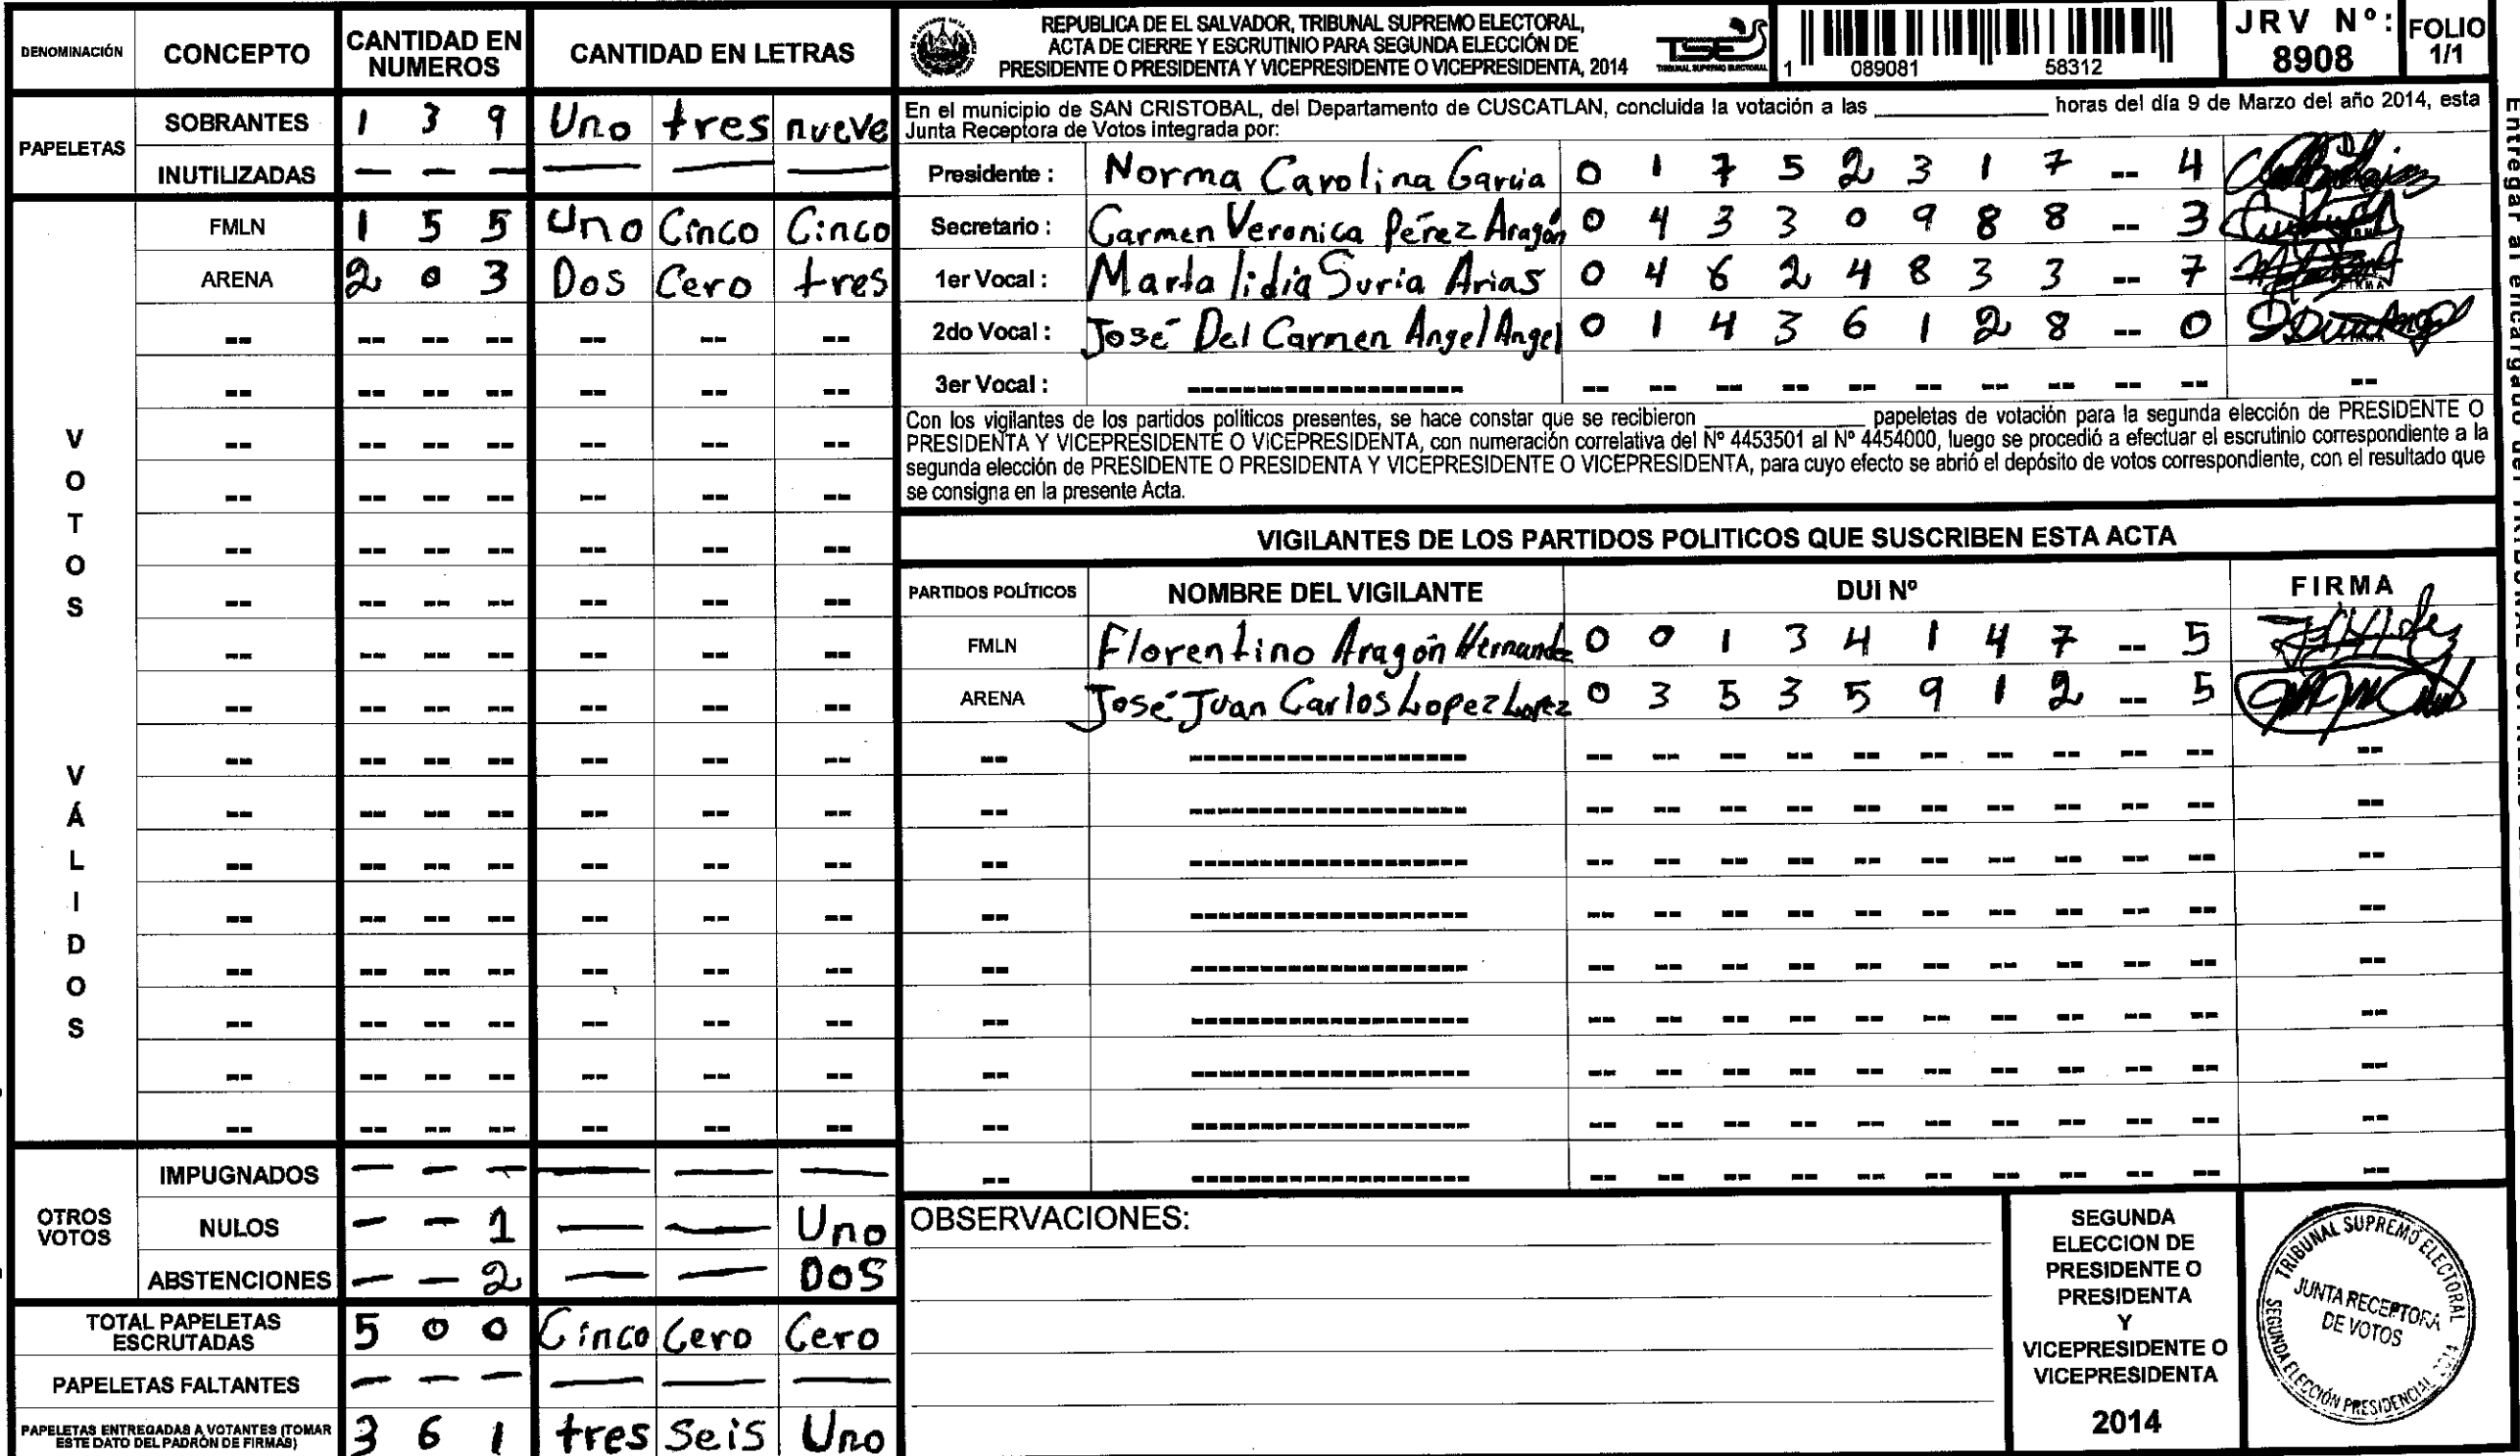 DENOMINACIÓN CONCEPTO CANTIDAD EN NUMEROS CANTIDAD EN LETRAS
PAPELETAS
SOBRANTES 1 3 9 Uno tres nueve
INUTILIZADAS — — — — — —
VOTOS VÁLIDOS
FMLN 1 5 5 Uno Cinco Cinco
ARENA 2 0 3 Dos Cero tres
OTROS VOTOS
IMPUGNADOS — — — — — —
NULOS — — 1 — — Uno
ABSTENCIONES — — 2 — — DOS
TOTAL PAPELETAS ESCRUTADAS 5 0 0 Cinco Cero Cero
PAPELETAS FALTANTES — — — — — —
PAPELETAS ENTREGADAS A VOTANTES (TOMAR ESTE DATO DEL PADRÓN DE FIRMAS) 3 6 1 tres Seis Uno
REPUBLICA DE EL SALVADOR, TRIBUNAL SUPREMO ELECTORAL,
ACTA DE CIERRE Y ESCRUTINIO PARA SEGUNDA ELECCIÓN DE
PRESIDENTE O PRESIDENTA Y VICEPRESIDENTE O VICEPRESIDENTA, 2014
TSE
TRIBUNAL SUPREMO ELECTORAL
1 089081 58312
JRV Nº: 8908
FOLIO 1/1
En el municipio de SAN CRISTOBAL, del Departamento de CUSCATLAN, concluida la votación a las ________ horas del día 9 de Marzo del año 2014, esta
Junta Receptora de Votos integrada por:
Presidente : Norma Carolina Garcia 0 1 7 5 2 3 1 7 -- 4
Secretario : Carmen Veronica Pérez Aragón 0 4 3 3 0 9 8 8 -- 3
1er Vocal : Marta lidia Suria Arias 0 4 6 2 4 8 3 3 -- 7
2do Vocal : José Del Carmen Angel Angel 0 1 4 3 6 1 2 8 -- 0
3er Vocal :
Con los vigilantes de los partidos políticos presentes, se hace constar que se recibieron ________ papeletas de votación para la segunda elección de PRESIDENTE O
PRESIDENTA Y VICEPRESIDENTE O VICEPRESIDENTA, con numeración correlativa del Nº 4453501 al Nº 4454000, luego se procedió a efectuar el escrutinio correspondiente a la
segunda elección de PRESIDENTE O PRESIDENTA Y VICEPRESIDENTE O VICEPRESIDENTA, para cuyo efecto se abrió el depósito de votos correspondiente, con el resultado que
se consigna en la presente Acta.
VIGILANTES DE LOS PARTIDOS POLITICOS QUE SUSCRIBEN ESTA ACTA
PARTIDOS POLÍTICOS NOMBRE DEL VIGILANTE DUI Nº FIRMA
FMLN Florentino Aragón Hernandez 0 0 1 3 4 1 4 7 -- 5
ARENA José Juan Carlos Lopez Lopez 0 3 5 3 5 9 1 2 -- 5
OBSERVACIONES:
SEGUNDA
ELECCION DE
PRESIDENTE O
PRESIDENTA
Y
VICEPRESIDENTE O
VICEPRESIDENTA
2014
TRIBUNAL SUPREMO ELECTORAL
JUNTA RECEPTORA
DE VOTOS
SEGUNDA ELECCIÓN PRESIDENCIAL 2014